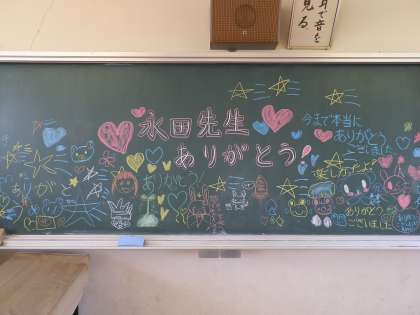 耳で音を
見る
永田先生
ありがとう
今まで本当に
ありがとう
ございました
楽しかったよ
ありが
ありがと
ありがとう
ございました